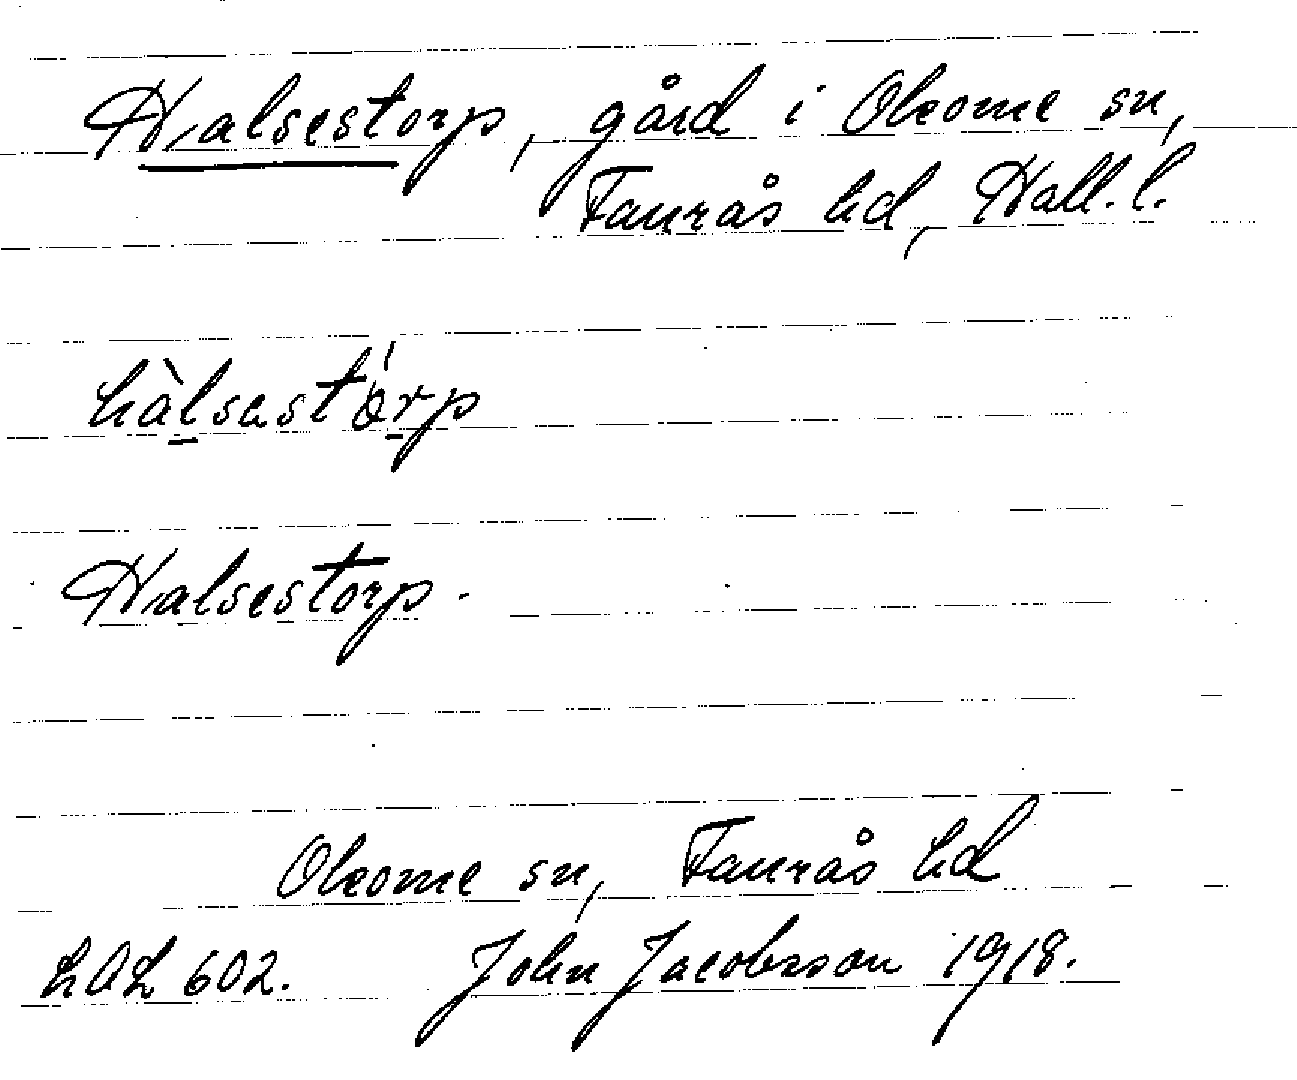 Halsestorp, gård i Okome sn,
Faurås hd, Hall. l.
hàlsastórp
Halsestorp.
Okome sn, Faurås hd
LAL 602. John Jacobsson 1918.